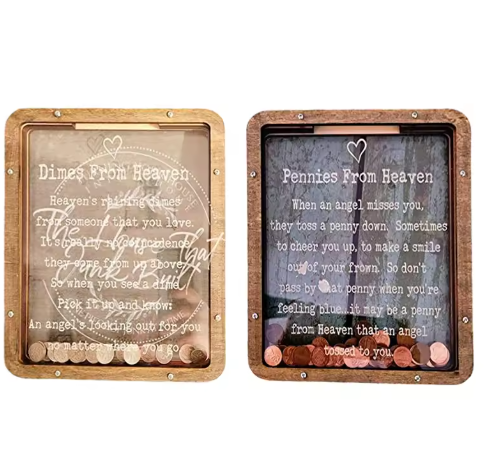 Dimes From Heaven
Heaven's raining dimes
from someone that you love.
It's really no coincidence
they come from up above.
So when you see a dime,
Pick it up and know:
An angel's looking out for you
no matter where you go.
The House That
Built
Pennies From Heaven
When an angel misses you,
they toss a penny down. Sometimes
to cheer you up, to make a smile
out of your frown. So don't
pass by that penny when you're
feeling blue...it may be a penny
from Heaven that an angel
tossed to you.